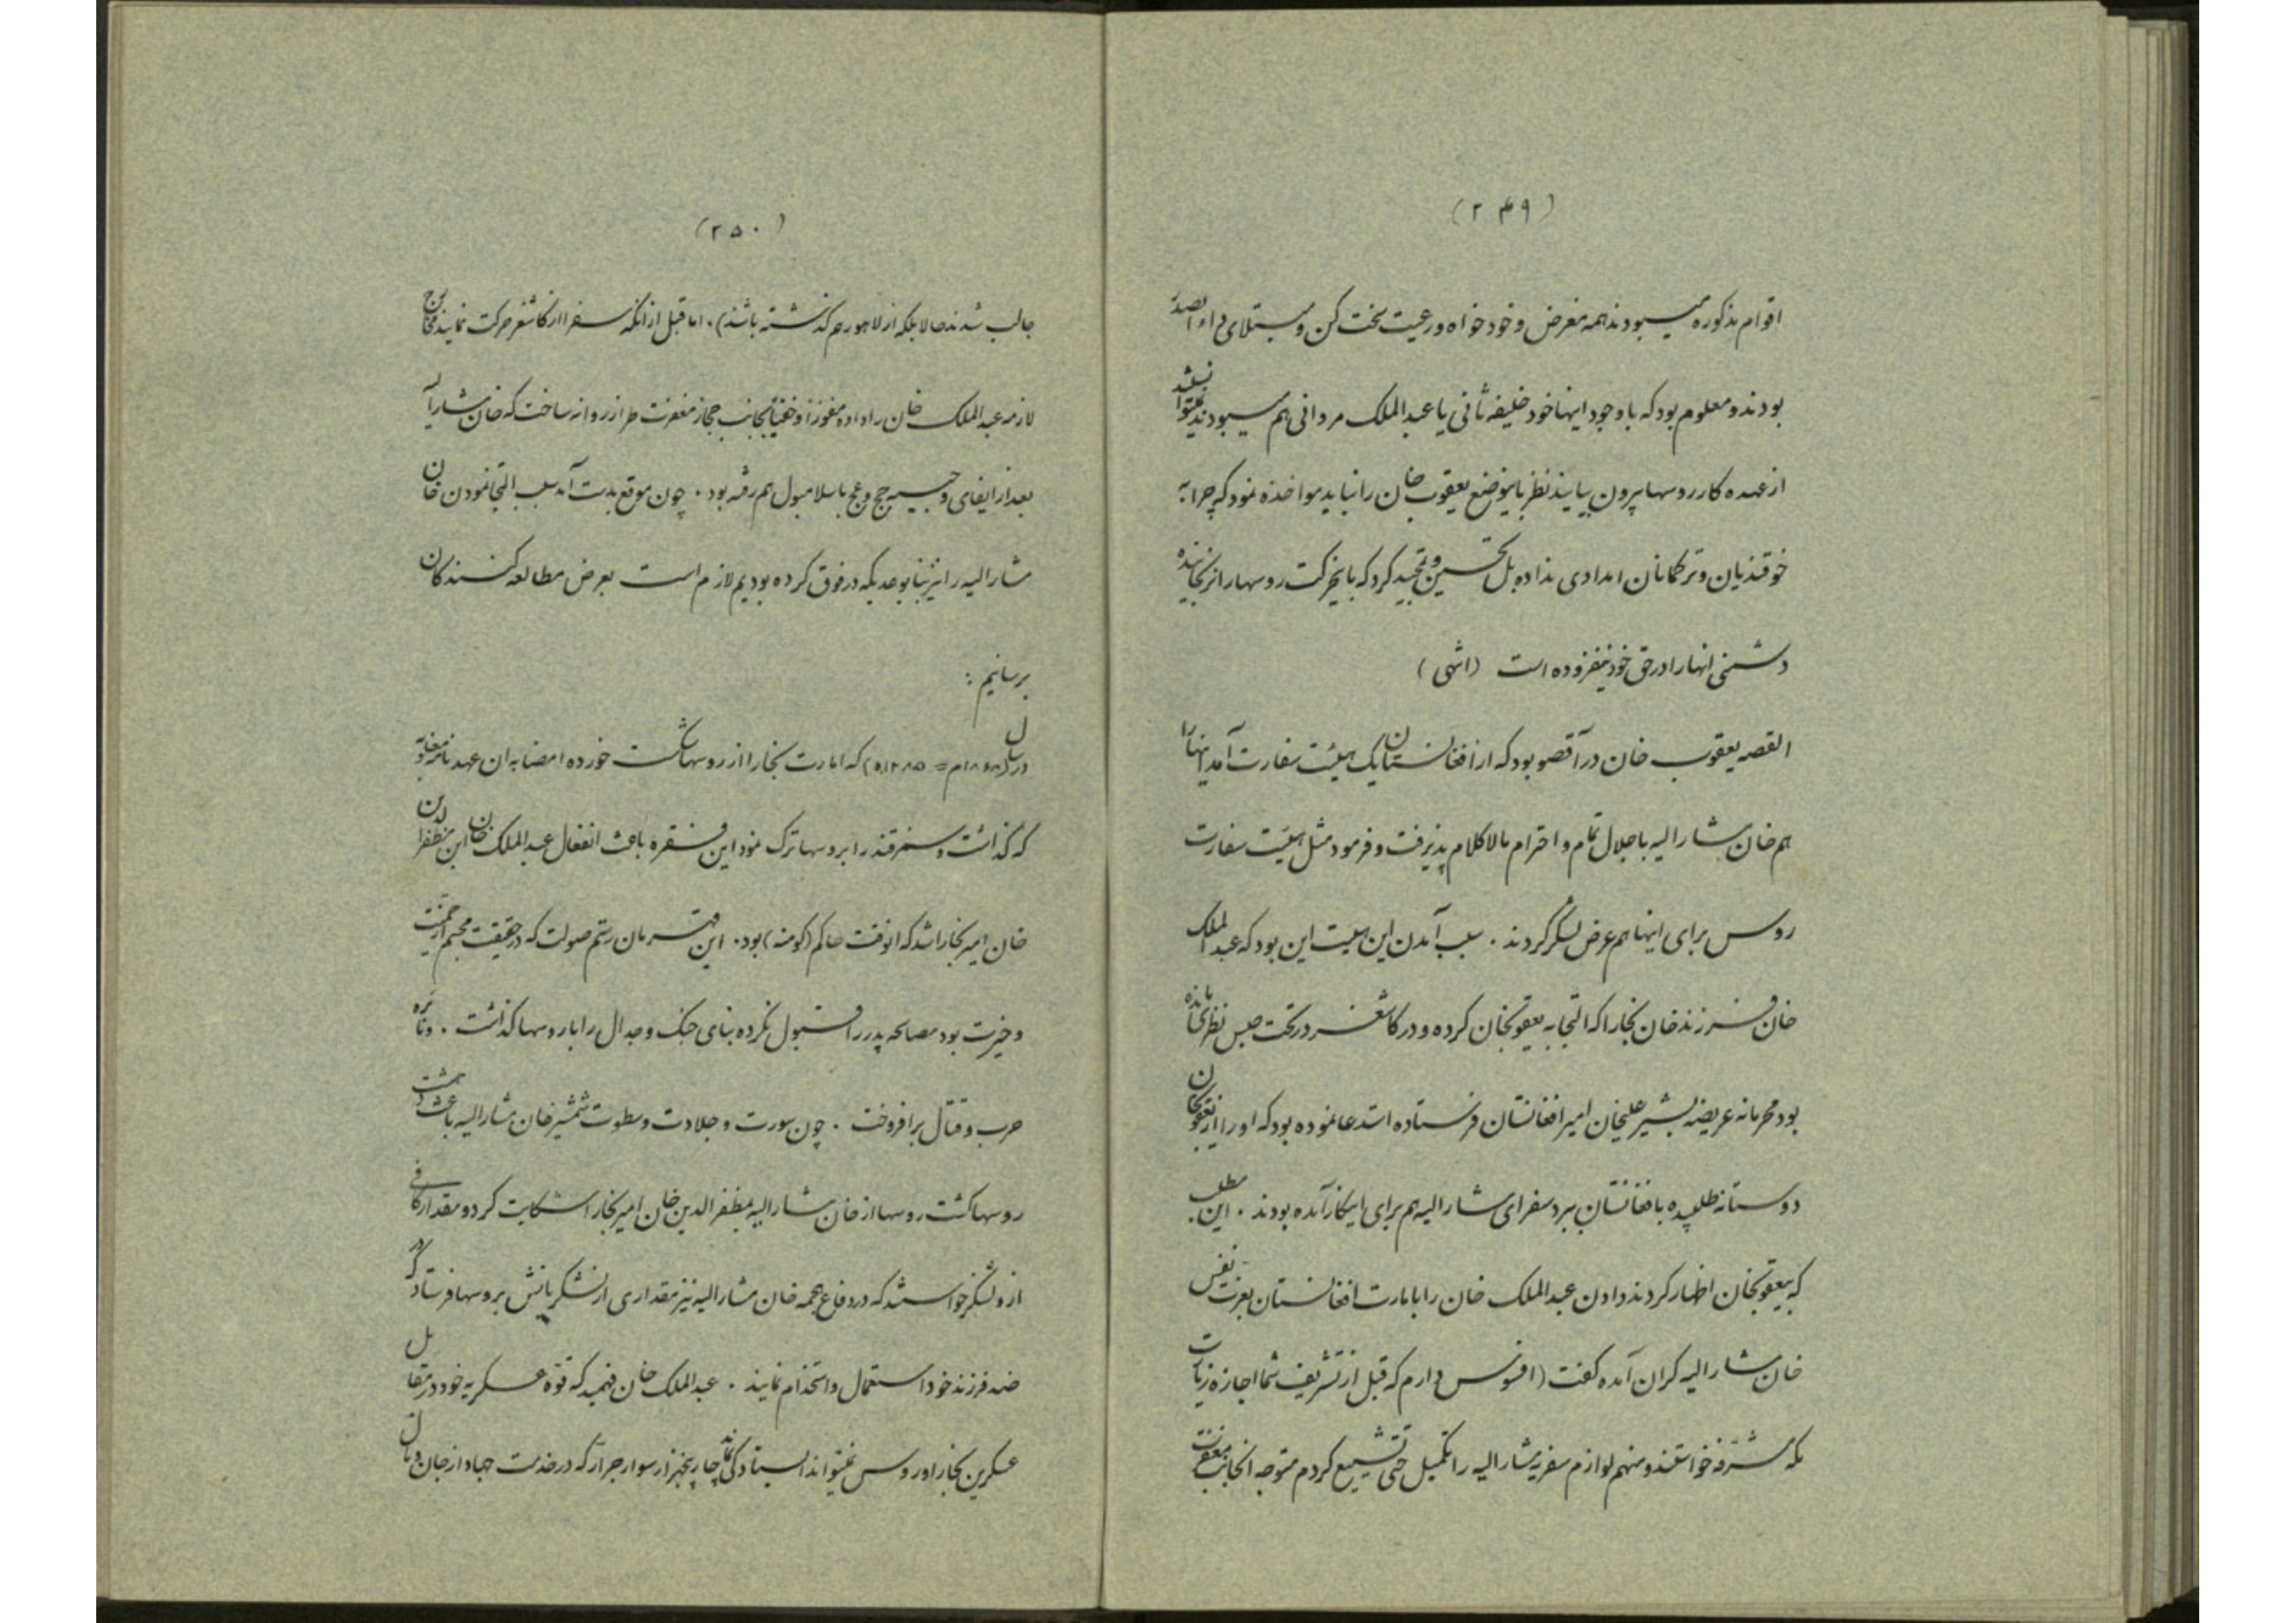 (۲۴۹)
اقوام مذکوره میبودند همه مغرض و خود خواه و رعیت سخت کن و مبتلای داء الصدر
بودند و معلوم بود که باوجود اینها خود خلیفه ثانی یا عبدالملک مروانی هم میبودند نمیتوانستند
از عهده کار روسها بیرون بیایند نظر باینوضع یعقوب خان را نباید مواخذه نمود که چرا به
خوقندیان و ترکمانان امدادی نداده بل تحسین و تمجید کرد که باینحرکت روسها را نرنجانیده
دشمنی انها را در حق خود نیفزوده است (انتهی)
القصه یعقوب خان در آقصو بود که از افغانستان یک هیئت سفارت آمد اینها را
هم خان مشارالیه باجلال تمام و احترام بالاکلام پذیرفت و فرمود مثل هیئت سفارت
روس برای اینها هم عرض لشکر کردند . سبب آمدن این هیئت این بود که عبدالملک
خان فرزند خان بخارا که التجا به یعقوبخان کرده و در کاشغر در تحت حبس نظری مانده
بود محرمانه عریضه بشیر علیخان امیر افغانستان فرستاده استدعا نموده بود که او را از یعقوبخان
دوستانه طلبیده بافغانستان ببرد سفرای مشارالیه هم برای اینکار آمده بودند . این مطلب
که بیعقوبخان اظهار کردند دادن عبدالملک خان را بامارت افغانستان بعزت نفس
خان مشارالیه گران آمده گفت (افسوس دارم که قبل از تشریف شما اجازه زیارت
مکه مشرفه خواستند و منهم لوازم سفریه مشارالیه را تکمیل حتی تشییع کردم متوجه انجانب مغفرت
(۲۵۰)
جالب شدند حالا بلکه از لاهور هم گذشته باشند) . اما قبل از انکه سفرا از کاشغر حرکت نمایند مخارج
لازمه عبدالملک خان را داده مفوزاً و خفیتاً بجانب حجاز مغفرت طراز روانه ساخت که خان مشارالیه
بعد از ایفای وجیبه حج و عج باسلامبول هم رفته بود . چون موقع بدست آمد سبب التجا نمودن خان
مشارالیه را نیز بنا بوعدیکه در فوق کرده بودیم لازم است بعرض مطالعه کنندکان
برسانیم :
در سال (۱۸۶۸م = ۱۲۸۵ه) که امارت بخارا از روسها شکست خورده امضا به ان عهد نامه
که گذاشت و سمرقند را بروسها ترک نمود این فقره باعث انفعال عبدالملک خان ابن مظفرالدین
خان امیر بخارا شد که انوقت حاکم (کومنه) بود . این قهرمان رستم صولت که در حقیقت مجسم از حمیت
و غیرت بود مصالحه پدر را قبول نکرده بنای جنک و جدال را با روسها گذاشت . و نائره
حرب و قتال برافروخت . چون سورت و جلادت و سطوت شمشیر خان مشارالیه باعث دهشت
روسها گشت روسها از خان مشارالیه بمظفرالدین خان امیر بخارا شکایت کرد و مقدار کافی
از و لشکر خواستند که در دفاع هجمه خان مشارالیه نیز مقداری از لشکریانش بروسها فرستاد که در
ضد فرزند خود استعمال و استخدام نمایند . عبدالملک خان فهمید که قوّه عسکریه خود در مقابل
عسکرین بخارا و روس نمیتواند ایستادگی نماید چار پنجهزار سوار جرار که در خدمت جهاد از جان و مال